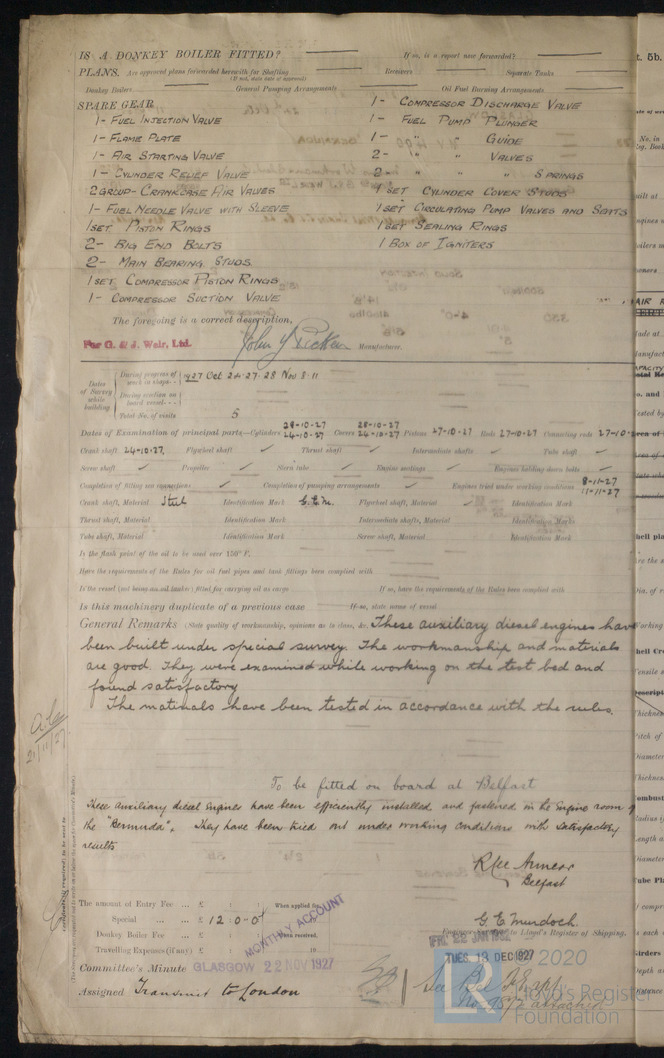 IS A DONKEY BOILER FITTED? If so, is a report now forwarded?
PLANS. Are approved plans forwarded herewith for Shafting Receivers Separate Tanks
(If not, state date of approval)
Donkey Boilers General Pumping Arrangements Oil Fuel Burning Arrangements
SPARE GEAR
1- FUEL INJECTION VALVE
1- FLAME PLATE
1- AIR STARTING VALVE
1- CYLINDER RELIEF VALVE
2 GROUP- CRANKCASE AIR VALVES
1- FUEL NEEDLE VALVE WITH SLEEVE
1 SET PISTON RINGS
2- BIG END BOLTS
2- MAIN BEARING STUDS
1 SET COMPRESSOR PISTON RINGS
1- COMPRESSOR SUCTION VALVE
1- COMPRESSOR DISCHARGE VALVE
1- FUEL PUMP PLUNGER
1- " " GUIDE
2- " " VALVES
2- " " " SPRINGS
1 SET CYLINDER COVER STUDS
1 SET CIRCULATING PUMP VALVES AND SEATS
1 SET SEALING RINGS
1 BOX OF IGNITERS
The foregoing is a correct description,
For G. & J. Weir, Ltd. Manufacturer.
Dates of Survey while building
During progress of work in shops - - 1927 Oct 24. 27. 28 Nov 8. 11
During erection on board vessel - - -
Total No. of visits 5
28-10-27 28-10-27
Dates of Examination of principal parts—Cylinders 24-10-27 Covers 24-10-27 Pistons 27-10-27 Rods 27-10-27 Connecting rods 27-10-27
Crank shaft 24-10-27. Flywheel shaft ✓ Thrust shaft ✓ Intermediate shafts ✓ Tube shaft ✓
Screw shaft ✓ Propeller ✓ Stern tube ✓ Engine seatings ✓ Engines holding down bolts ✓
Completion of fitting sea connections ✓ Completion of pumping arrangements ✓ Engines tried under working conditions 8-11-27
11-11-27
Crank shaft, Material Steel Identification Mark G.E.M. Flywheel shaft, Material ✓ Identification Mark
Thrust shaft, Material Identification Mark Intermediate shafts, Material Identification Marks
Tube shaft, Material Identification Mark Screw shaft, Material Identification Mark
Is the flash point of the oil to be used over 150° F.
Have the requirements of the Rules for oil fuel pipes and tank fittings been complied with
Is the vessel (not being an oil tanker) fitted for carrying oil as cargo If so, have the requirements of the Rules been complied with
Is this machinery duplicate of a previous case If so, state name of vessel
General Remarks (State quality of workmanship, opinions as to class, &c. These auxiliary diesel engines have
been built under special survey. The workmanship and materials
are good. They were examined while working on the test bed and
found satisfactory
The materials have been tested in accordance with the rules.
To be fitted on board at Belfast
These auxiliary diesel engines have been efficiently installed and fastened in the engine room of
the "Bermuda". They have been tried out under working conditions with satisfactory
results
Belfast
The amount of Entry Fee ... £ : : When applied for,
Special ... ... £ 12-0-0
Donkey Boiler Fee ... £ : : When received,
Travelling Expenses (if any) £ : :
MONTHLY ACCOUNT
G. E. Murdoch.
Engineer Surveyor to Lloyd's Register of Shipping.
Committee's Minute GLASGOW 22 NOV 1927
TUES. 13 DEC 1927
Assigned Transmit to London
© 2020
LR
Lloyd's Register
Foundation